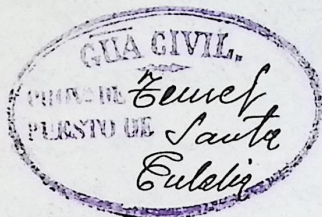 GUA CIVIL.
PROVª DE Teruel
PUESTO DE Santa
Eulalia